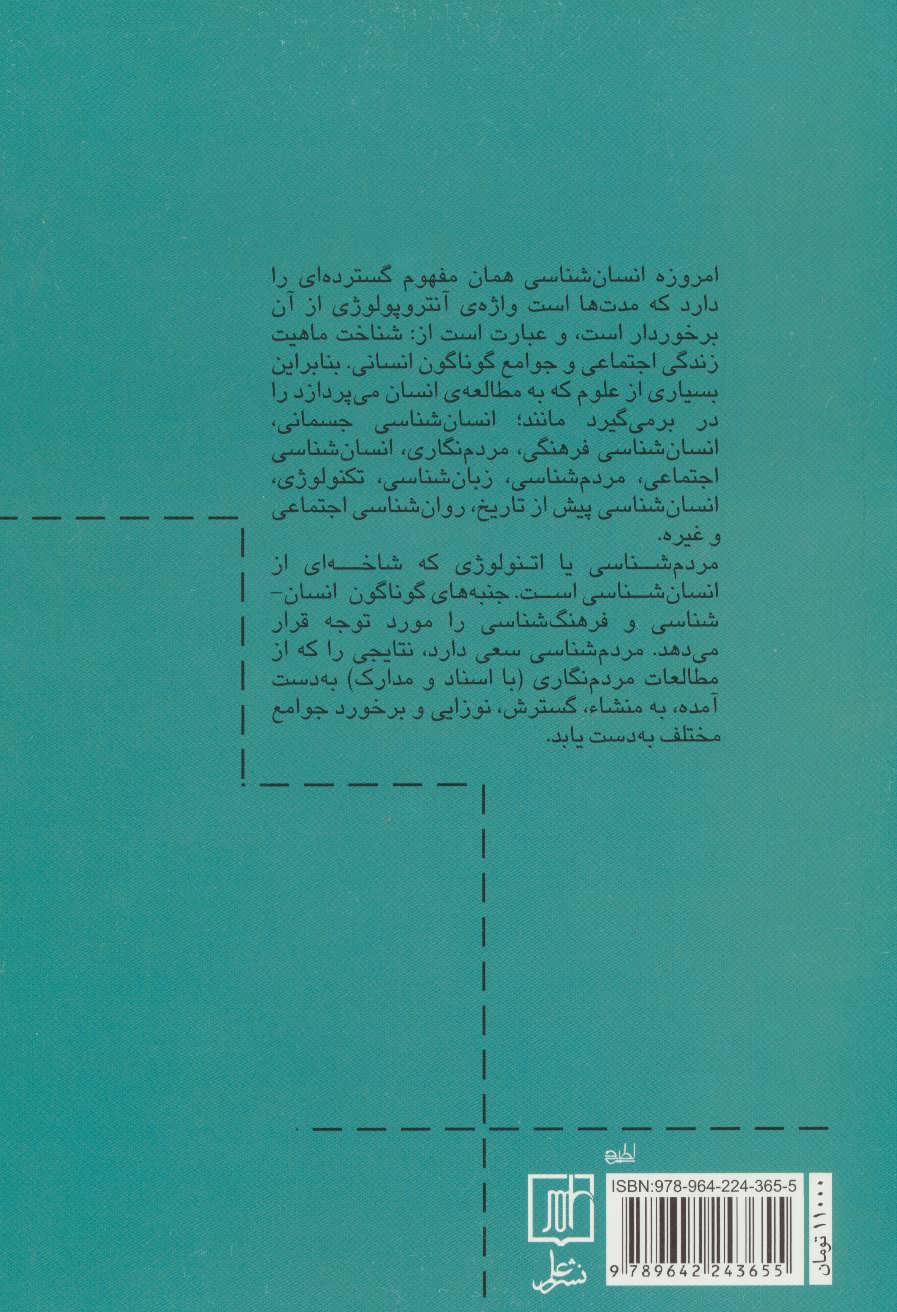 امروزه انسان‌شناسی همان مفهوم گسترده‌ای را
دارد که مدت‌ها است واژه‌ی آنتروپولوژی از آن
برخوردار است، و عبارت است از: شناخت ماهیت
زندگی اجتماعی و جوامع گوناگون انسانی. بنابراین
بسیاری از علوم که به مطالعه‌ی انسان می‌پردازد را
در برمی‌گیرد مانند؛ انسان‌شناسی جسمانی،
انسان‌شناسی فرهنگی، مردم‌نگاری، انسان‌شناسی
اجتماعی، مردم‌شناسی، زبان‌شناسی، تکنولوژی،
انسان‌شناسی پیش از تاریخ، روان‌شناسی اجتماعی
و غیره.
مردم‌شناسی یا اتنولوژی که شاخه‌ای از
انسان‌شناسی است. جنبه‌های گوناگون انسان-
شناسی و فرهنگ‌شناسی را مورد توجه قرار
می‌دهد. مردم‌شناسی سعی دارد، نتایجی را که از
مطالعات مردم‌نگاری (با اسناد و مدارک) به‌دست
آمده، به منشاء، گسترش، نوزایی و برخورد جوامع
مختلف به‌دست یابد.
ISBN:978-964-224-365-5
9 789642 243655
۱۱۰۰۰ تومان
نشر علم